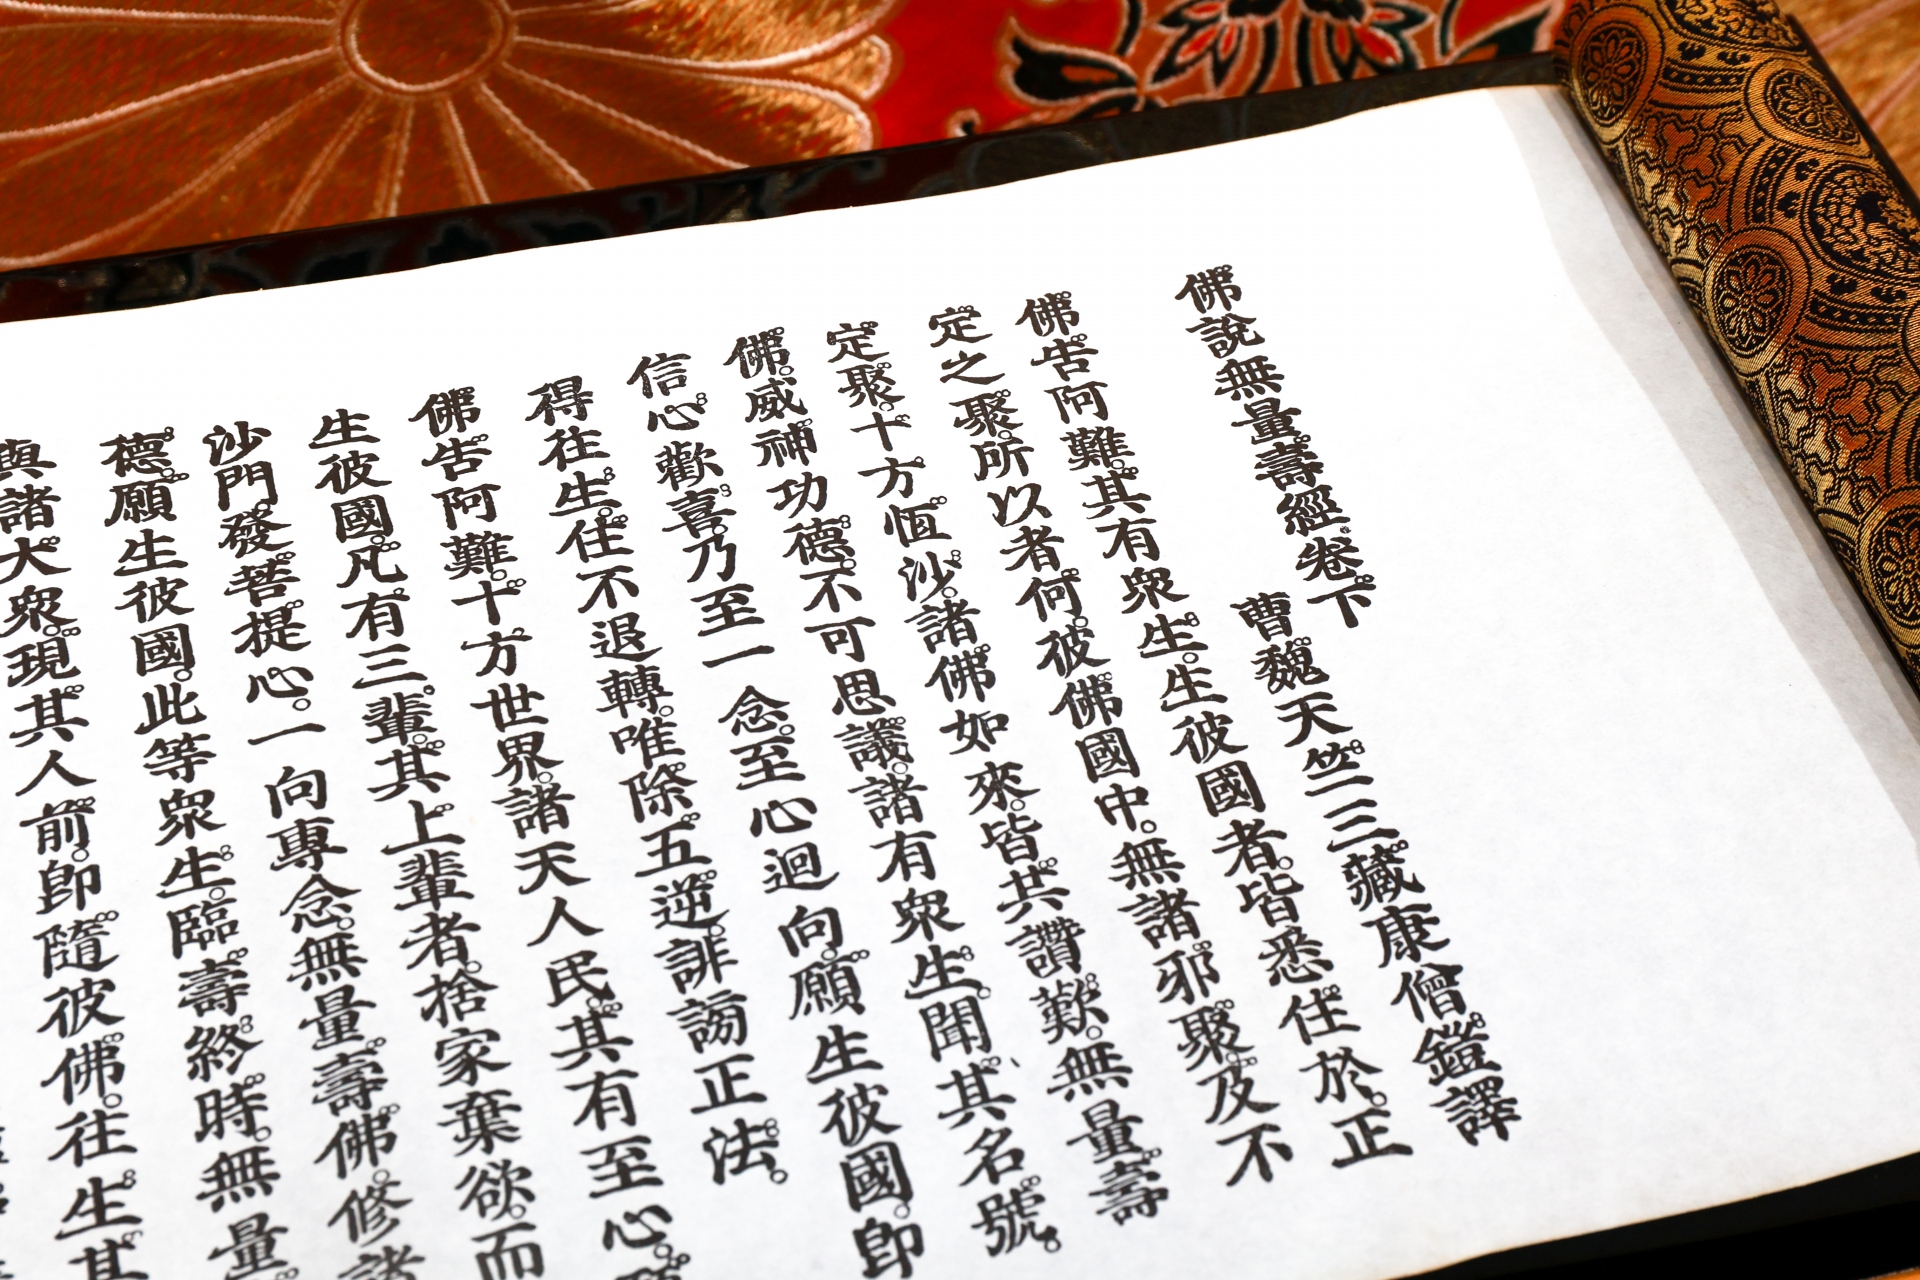 佛說無量壽經卷下
曹魏天竺三藏康僧鎧譯
佛告阿難。其有衆生。生彼國者。皆悉住於。正
定之聚。所以者何。彼佛國中。無諸邪聚。及不
定聚。十方恆沙。諸佛如來。皆共讚歎。無量壽
佛。威神功德。不可思議。諸有衆生。聞其名號。
信心歡喜。乃至一念。至心迴向。願生彼國。即
得往生。住不退轉。唯除五逆。誹謗正法。
佛告阿難。十方世界。諸天人民。其有至心。
生彼國。凡有三輩。其上輩者。捨家棄欲。而
沙門。發菩提心。一向專念。無量壽佛。修諸
德。願生彼國。此等衆生。臨壽終時。無量
與諸大衆。現其人前。即隨彼佛。往生其